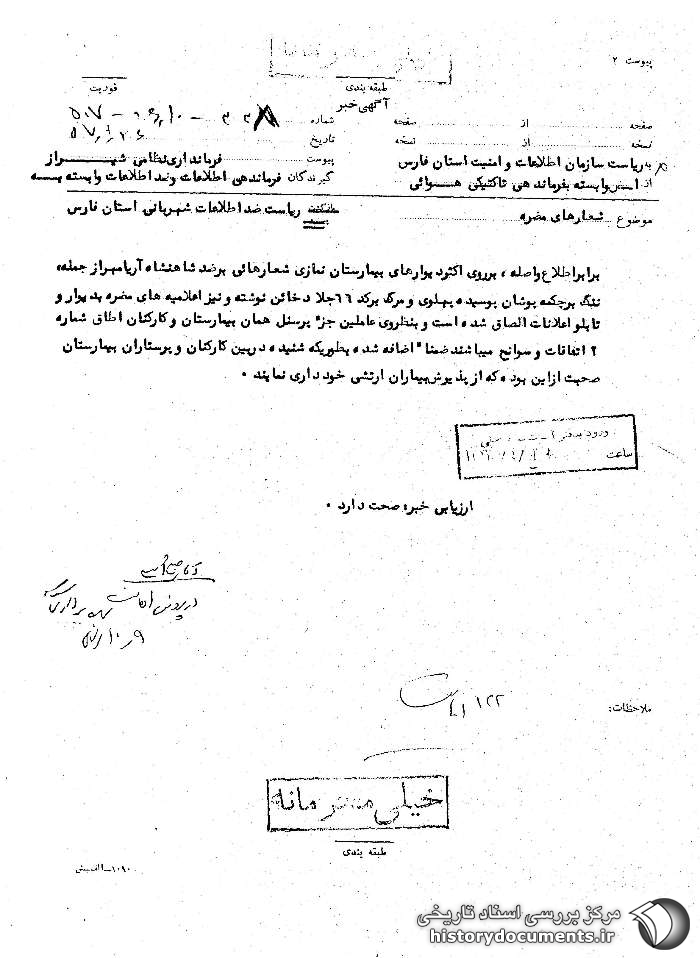 پیوست ۲
طبقه بندی
فوریت
آگهی خبر
صفحه از صفحه شماره
نسخه از نسخه تاریخ
به ریاست سازمان اطلاعات و امنیت استان فارس پیوست فرمانداری نظامی شیراز
از وابسته بفرماندهی تاکتیکی هوائی گیرندگان فرماندهی اطلاعات وضد اطلاعات وابسته
موضوع شعارهای مضره ریاست ضد اطلاعات شهربانی استان فارس
برابر اطلاع واصله ، برروی اکثر دیوارهای بیمارستان نمازی شعارهائی برضد شاهنشاه آریامهر از جمله،
ننگ برچکمه پوشان پوسیده پهلوی و مرگ برکد ۶۶ جلاد خائن نوشته و نیز اعلامیه های مضره به دیوار و
تابلو اعلانات الصاق شده است و بنظر وی عاملین جز پرسنل همان بیمارستان و کارکنان اطاق شماره
۲ اتفاقات و سوانح میباشند ضمنا" اضافه شده بطوریکه شنیده دربین کارکنان و پرستاران بیمارستان
صحبت از این بوده که از پذیرش بیماران ارتشی خود داری نمایند .
ساعت
ارزیابی خبر: صحت دارد .
۱۲۲
ملاحظات:
خیلی محرمانه
طبقه بندی
مرکز بررسی اسناد تاریخی
historydocuments.ir